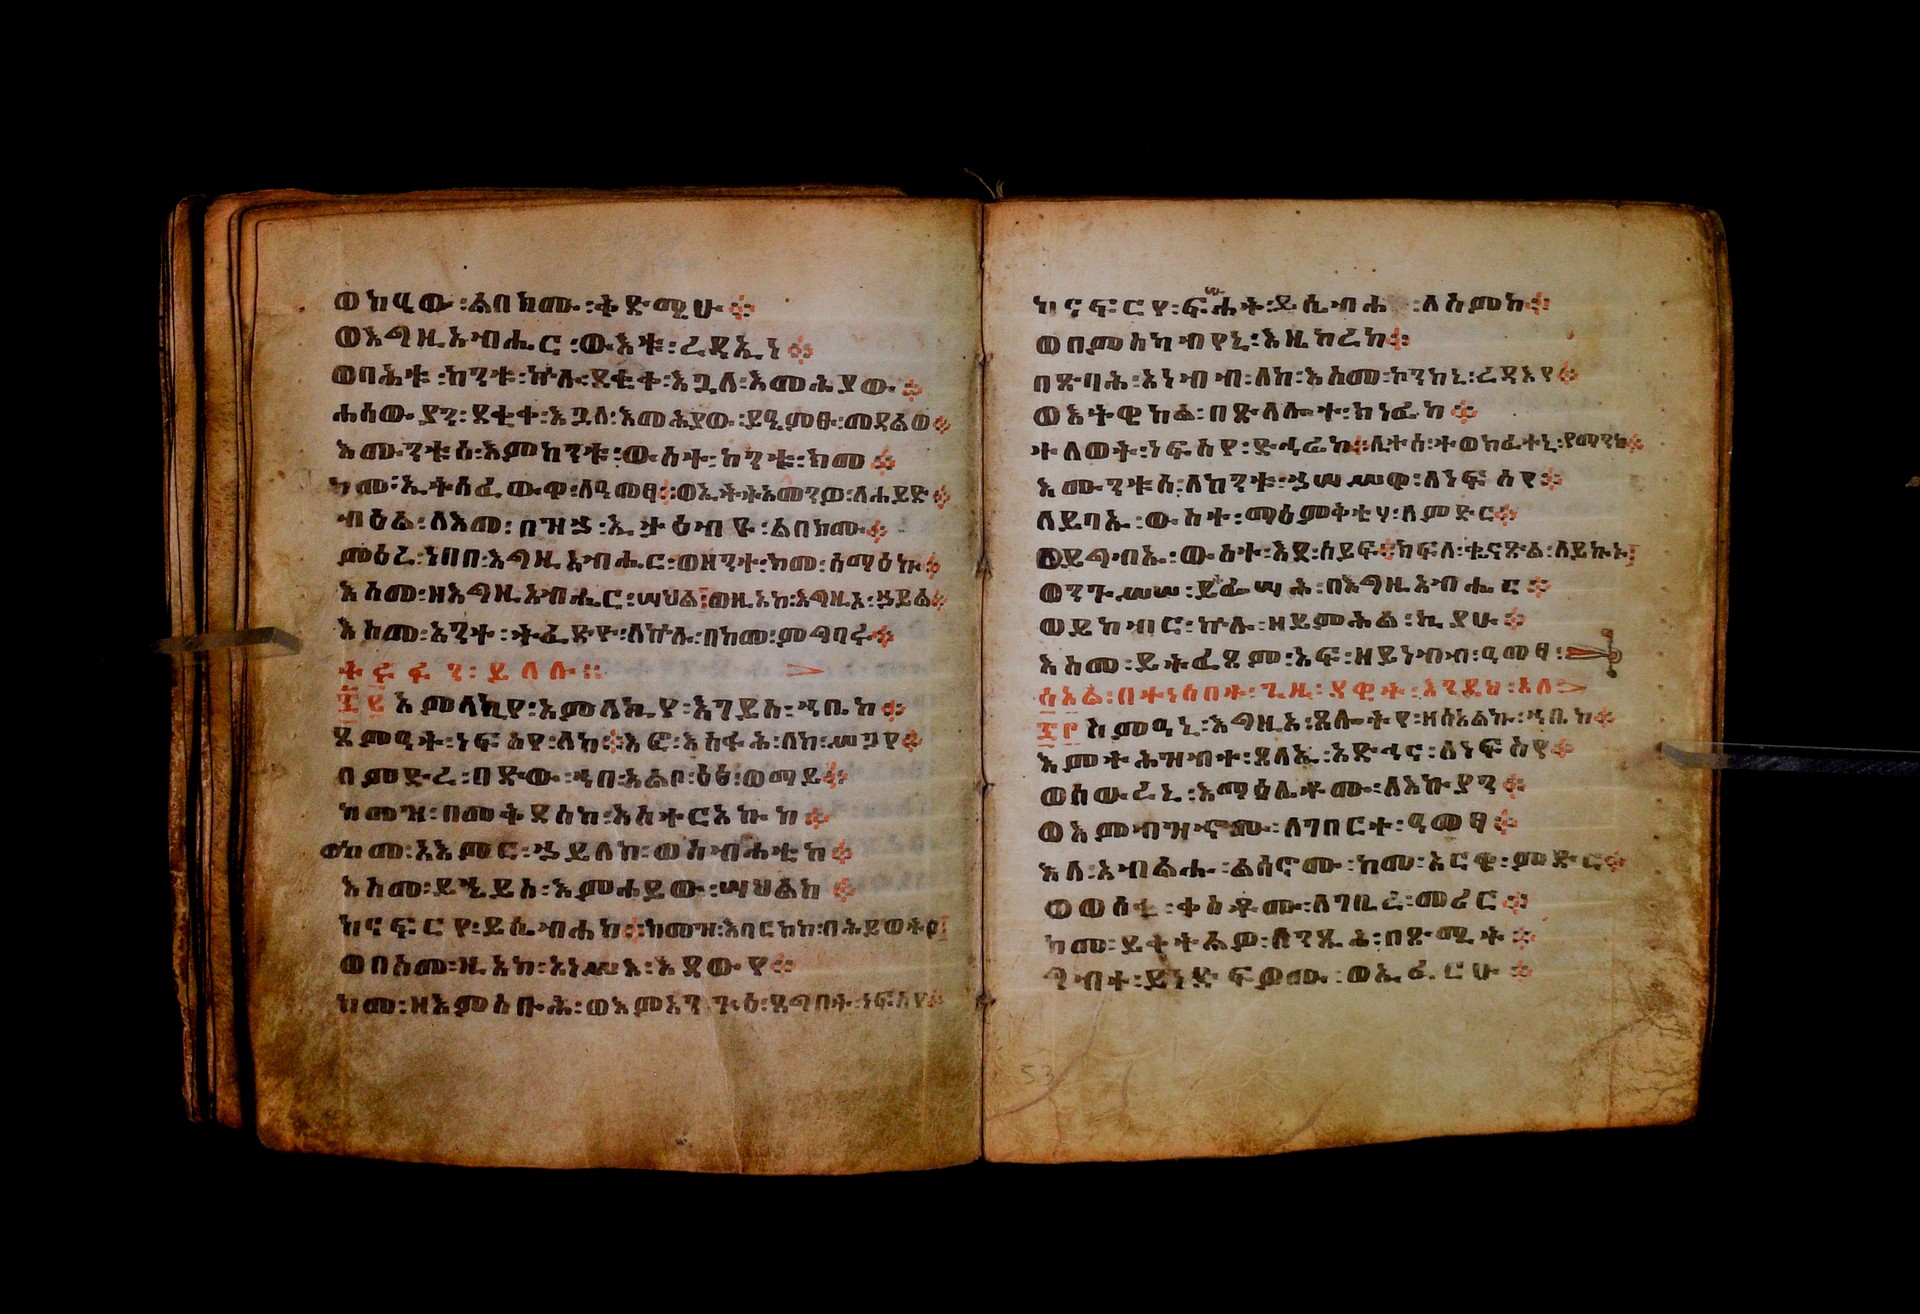 ወከዓው፡ልበክሙ፡ቅድሜሁ፨
ወእግዚአብሔር፡ውእቱ፡ረዳኢነ፨
ወባሕቱ፡ከንቱ፡ኵሉ፡ደቂቀ፡እጓለ፡እመሕያው፨
ሐሰውያን፡ደቂቀ፡እጓለ፡እመሕያው፡ይዔምፁ፡መዳልወ፨
እሙንቱሰ፡እምከንቱ፡ውስተ፡ከንቱ፡ከመ፨
ከመ፡ኢትሰፈውዋ፡ለዓመፃ፨ወኢትትአመንዋ፡ለሐይድ፨
ብዕል፡ለእመ፡በዝኀ፡ኢታዕብዩ፡ልበክሙ፨
ምዕረ፡ነበበ፡እግዚአብሔር፡ወዘንተ፡ከመ፡ሰማዕኩ፨
እስመ፡ዘእግዚአብሔር፡ሣህል፨ወዚአከ፡እግዚኦ፡ኀይል፨
እስመ፡አንተ፡ትፈድዮ፡ለኵሉ፡በከመ፡ምግባሩ፨
ትሩፋን፡ይለሉ፡፡
፷፪ አምላኪየ፡አምላኪየ፡እገይስ፡ኀቤከ፨
ጸምዓት፡ነፍስየ፡ለከ፨እፎ፡እስፋሕ፡ለከ፡ሥጋየ፨
በምድረ፡በድው፡ኀበ፡አልቦ፡ዕፅ፡ወማይ፨
ከመዝ፡በመቅደስከ፡አስተርአኩከ፨
ከመ፡አእምር፡ኀይለከ፡ወስብሐቲከ፨
እስመ፡ይኄይስ፡እምሐይው፡ሣህልከ፨
ከናፍርየ፡ይሴብሓከ፨ከመዝ፡እባርከከ፡በሕይወትየ፨
ወበስመ፡ዚአከ፡አነሥእ፡እደውየ፨
ከመ፡ዘእምስቡሕ፡ወእምአንጕዕ፡ጸግበት፡ነፍስየ፨
ከናፍርየ፡ፍሥሐት፡ይሴብሓ፡ለስመከ፨
ወበምስካብየኒ፡እዜከረከ፨
በጽባሕ፡እነብብ፡ለከ፡እስመ፡ኮንከኒ፡ረዳእየ፨
ወእትዌከል፡በጽላሎተ፡ክነፊከ፨
ተለወት፡ነፍስየ፡ድኅሬከ፨ሊተሰ፡ተወክፈተኒ፡የማንከ፨
እሙንቱሰ፡ለከንቱ፡ኀሠሥዋ፡ለነፍስየ፨
ለይባኡ፡ውስተ፡ማዕምቅቲሃ፡ለምድር፨
ወይግብኡ፡ውስተ፡እደ፡ሰይፍ፨ክፍለ፡ቁናጽል፡ለይኩኑ፨
ወንጉሠሰ፡ይትፌሣሕ፡በእግዚአብሔር፨
ወይከብር፡ኵሉ፡ዘይምሕል፡ኪያሁ፨
እስመ፡ይትፈፀም፡አፍ፡ዘይነብብ፡ዓመፃ፨
፷፫ ስምዓኒ፡እግዚኦ፡ጸሎትየ፡ዘሰአልኩ፡ኀቤከ፨
እምትሕዝብተ፡ጸላኢ፡አድኅና፡ለነፍስየ፨
ወሰውረኒ፡እማዕሌቶሙ፡ለእኩያን፨
ወእምብዝኖሙ፡ለገበርተ፡ዓመፃ፨
እለ፡አብልሑ፡ልሳኖሙ፡ከመ፡አርዌ፡ምድር፨
ወወሰቁ፡ቀስቶሙ፡ለገቢረ፡መሪር፨
ከመ፡ይቅትልዎ፡ለንጹሕ፡በጽሚት፨
ግብተ፡ይነድፍዎሙ፡ወኢፈርሁ፨
53